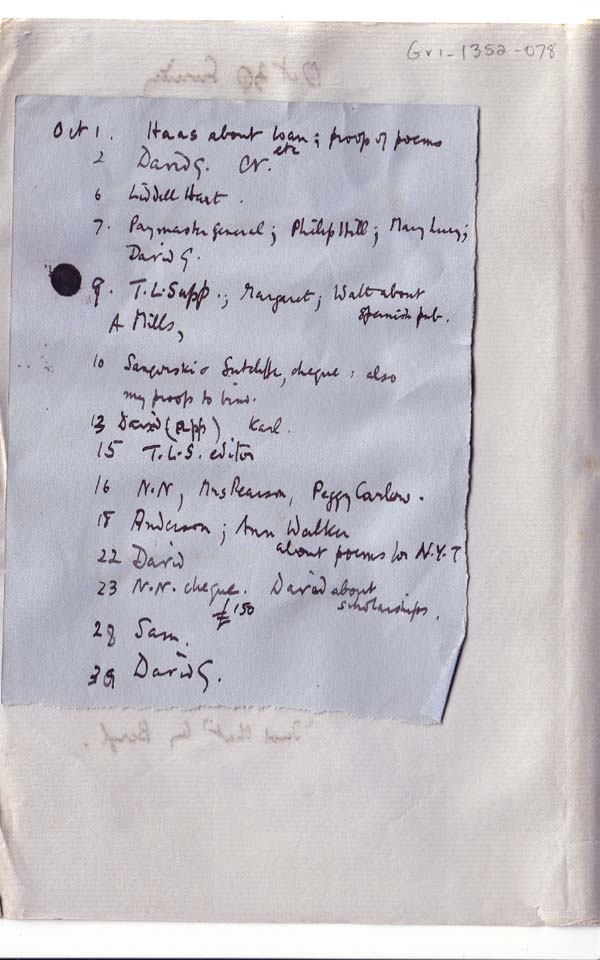 Gri-1352-078
Oct 1. Haas about loan; proof of poems
etc
2 David G. CN.
6 Liddell Hart.
7. Paymaster General; Philip Hill; Mary Lucy;
David G.
9. T.L.Supp.; Margaret; Walt about
Spanish pub.
A Mills,
10 Sangorski & Sutcliffe, cheque: also
my proofs to bind.
13 David (app) Karl.
15 T.L.S. editor
16 N.N, Mrs Pearson, Peggy Carlow.
18 Anderson; Ann Walker
about poems for N.Y.T
22 David
23 N.N. cheque. David about
£150 scholarships.
28 Sam.
30 David G.